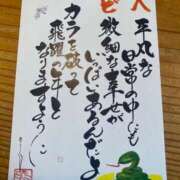 平凡な
日常の中にも
些細な幸せが
いっぱいあるんだよ
カラを破って
飛躍の年と
なりますように